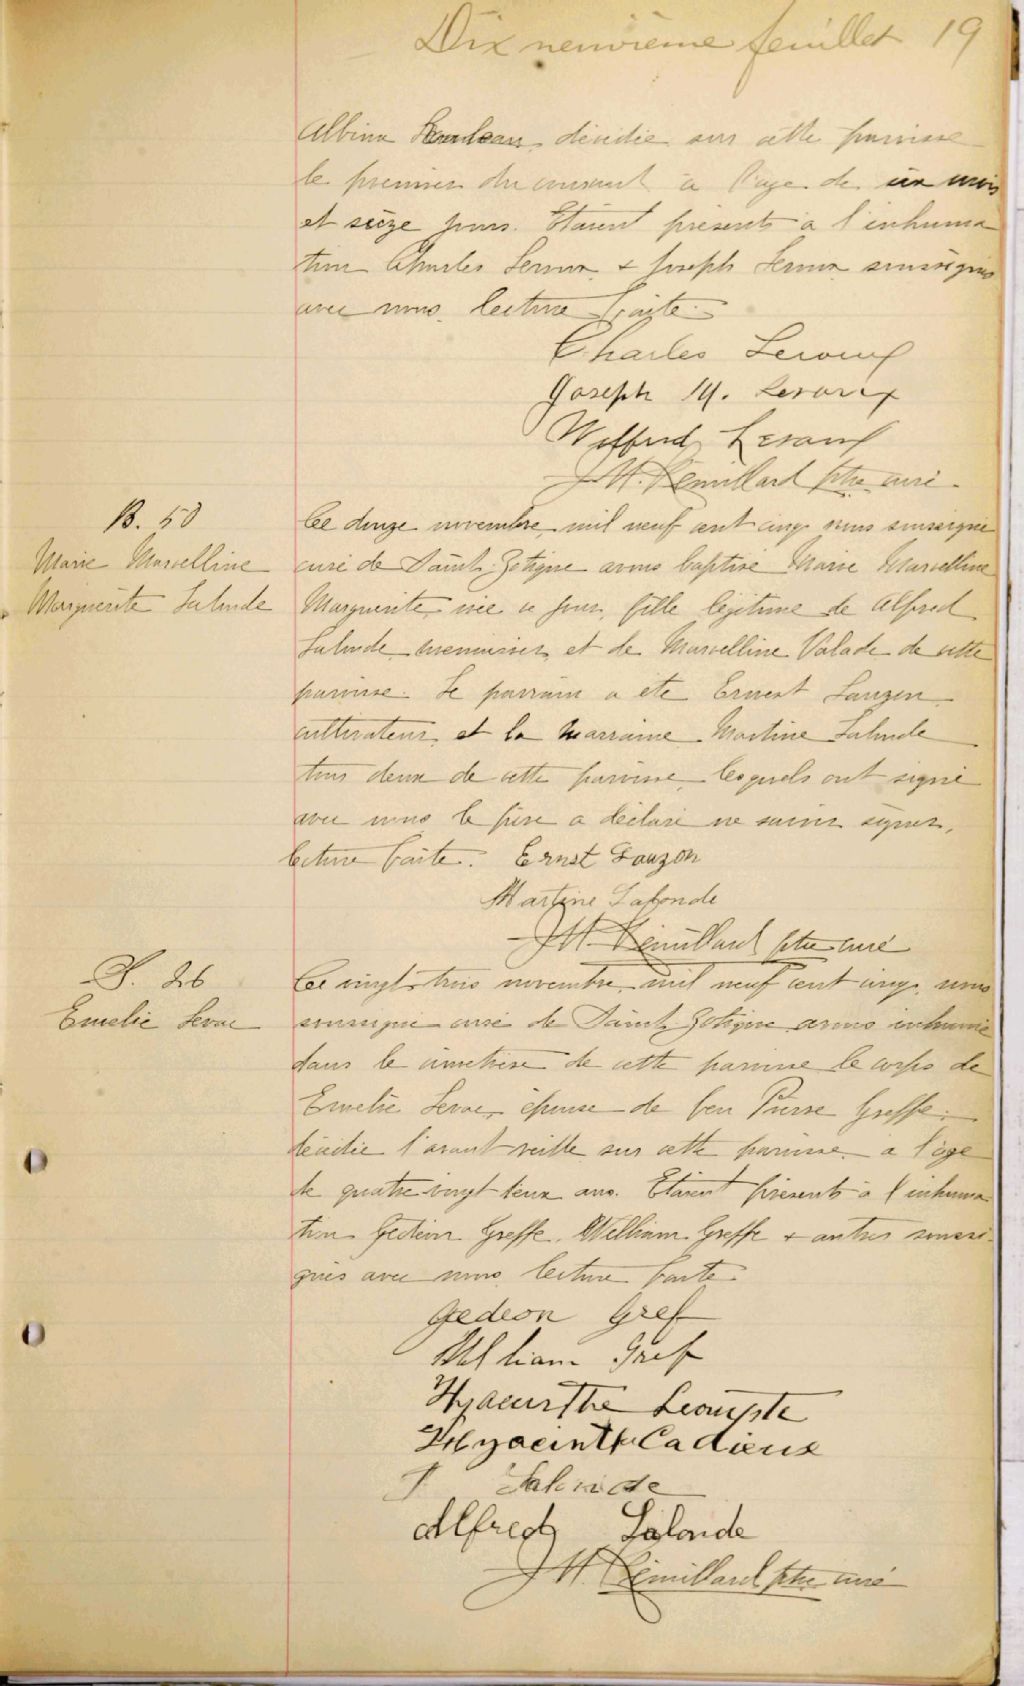 Dix neuvième feuillet 19
Albina décédée sur cette paroisse
le premier du courant à l'age de six mois
et seize jours. Etaient présents à l'inhuma
tion Charles Leroux & Joseph Leroux soussignés
avec nous, lecture faite.
Charles Leroux
Joseph M. Leroux
Wilffrid Leroux
J M. Rémillard ptre curé.
B. 50
Marie Marcelline
Marguerite Lalonde
Ce douze novembre, mil neuf cent cinq nous soussigné
curé de Saint Zotique avons baptisé Marie Marcelline
Marguerite, née ce jour, fille légitime de Alfred
Lalonde menuisier, et de Marcelline Valade de cette
paroisse. Le parrain a été Ernest Lauzon
cultivateur, et la marraine Martine Lalonde
tous deux de cette paroisse, lesquels ont signé
avec nous, le père a déclaré ne savoir signer,
lecture faite. Ernst Lauzon
Martine Lalonde
J M. Rémillard ptre curé
S. 26
Emelie Levac
Ce vingt-trois novembre, mil neuf cent cinq, nous
soussigné curé de Saint Zotique avons inhumé
dans le cimetière de cette paroisse le corps de
Emelie Levac, épouse de feu Pierre Greffe,
décédée l'avant-veille sur cette paroisse à l'âge
de quatre vingt deux ans. Etaient présents à l'inhuma
tion Gédéon Greffe, William Greffe & autres soussi-
gnés avec nous, lecture faite.
Gedeon Gref
William Gref
Hyacinthe Lecompte
Hyacinth Cadieux
Lalonde
Alfred Lalonde
J M. Rémillard ptre curé